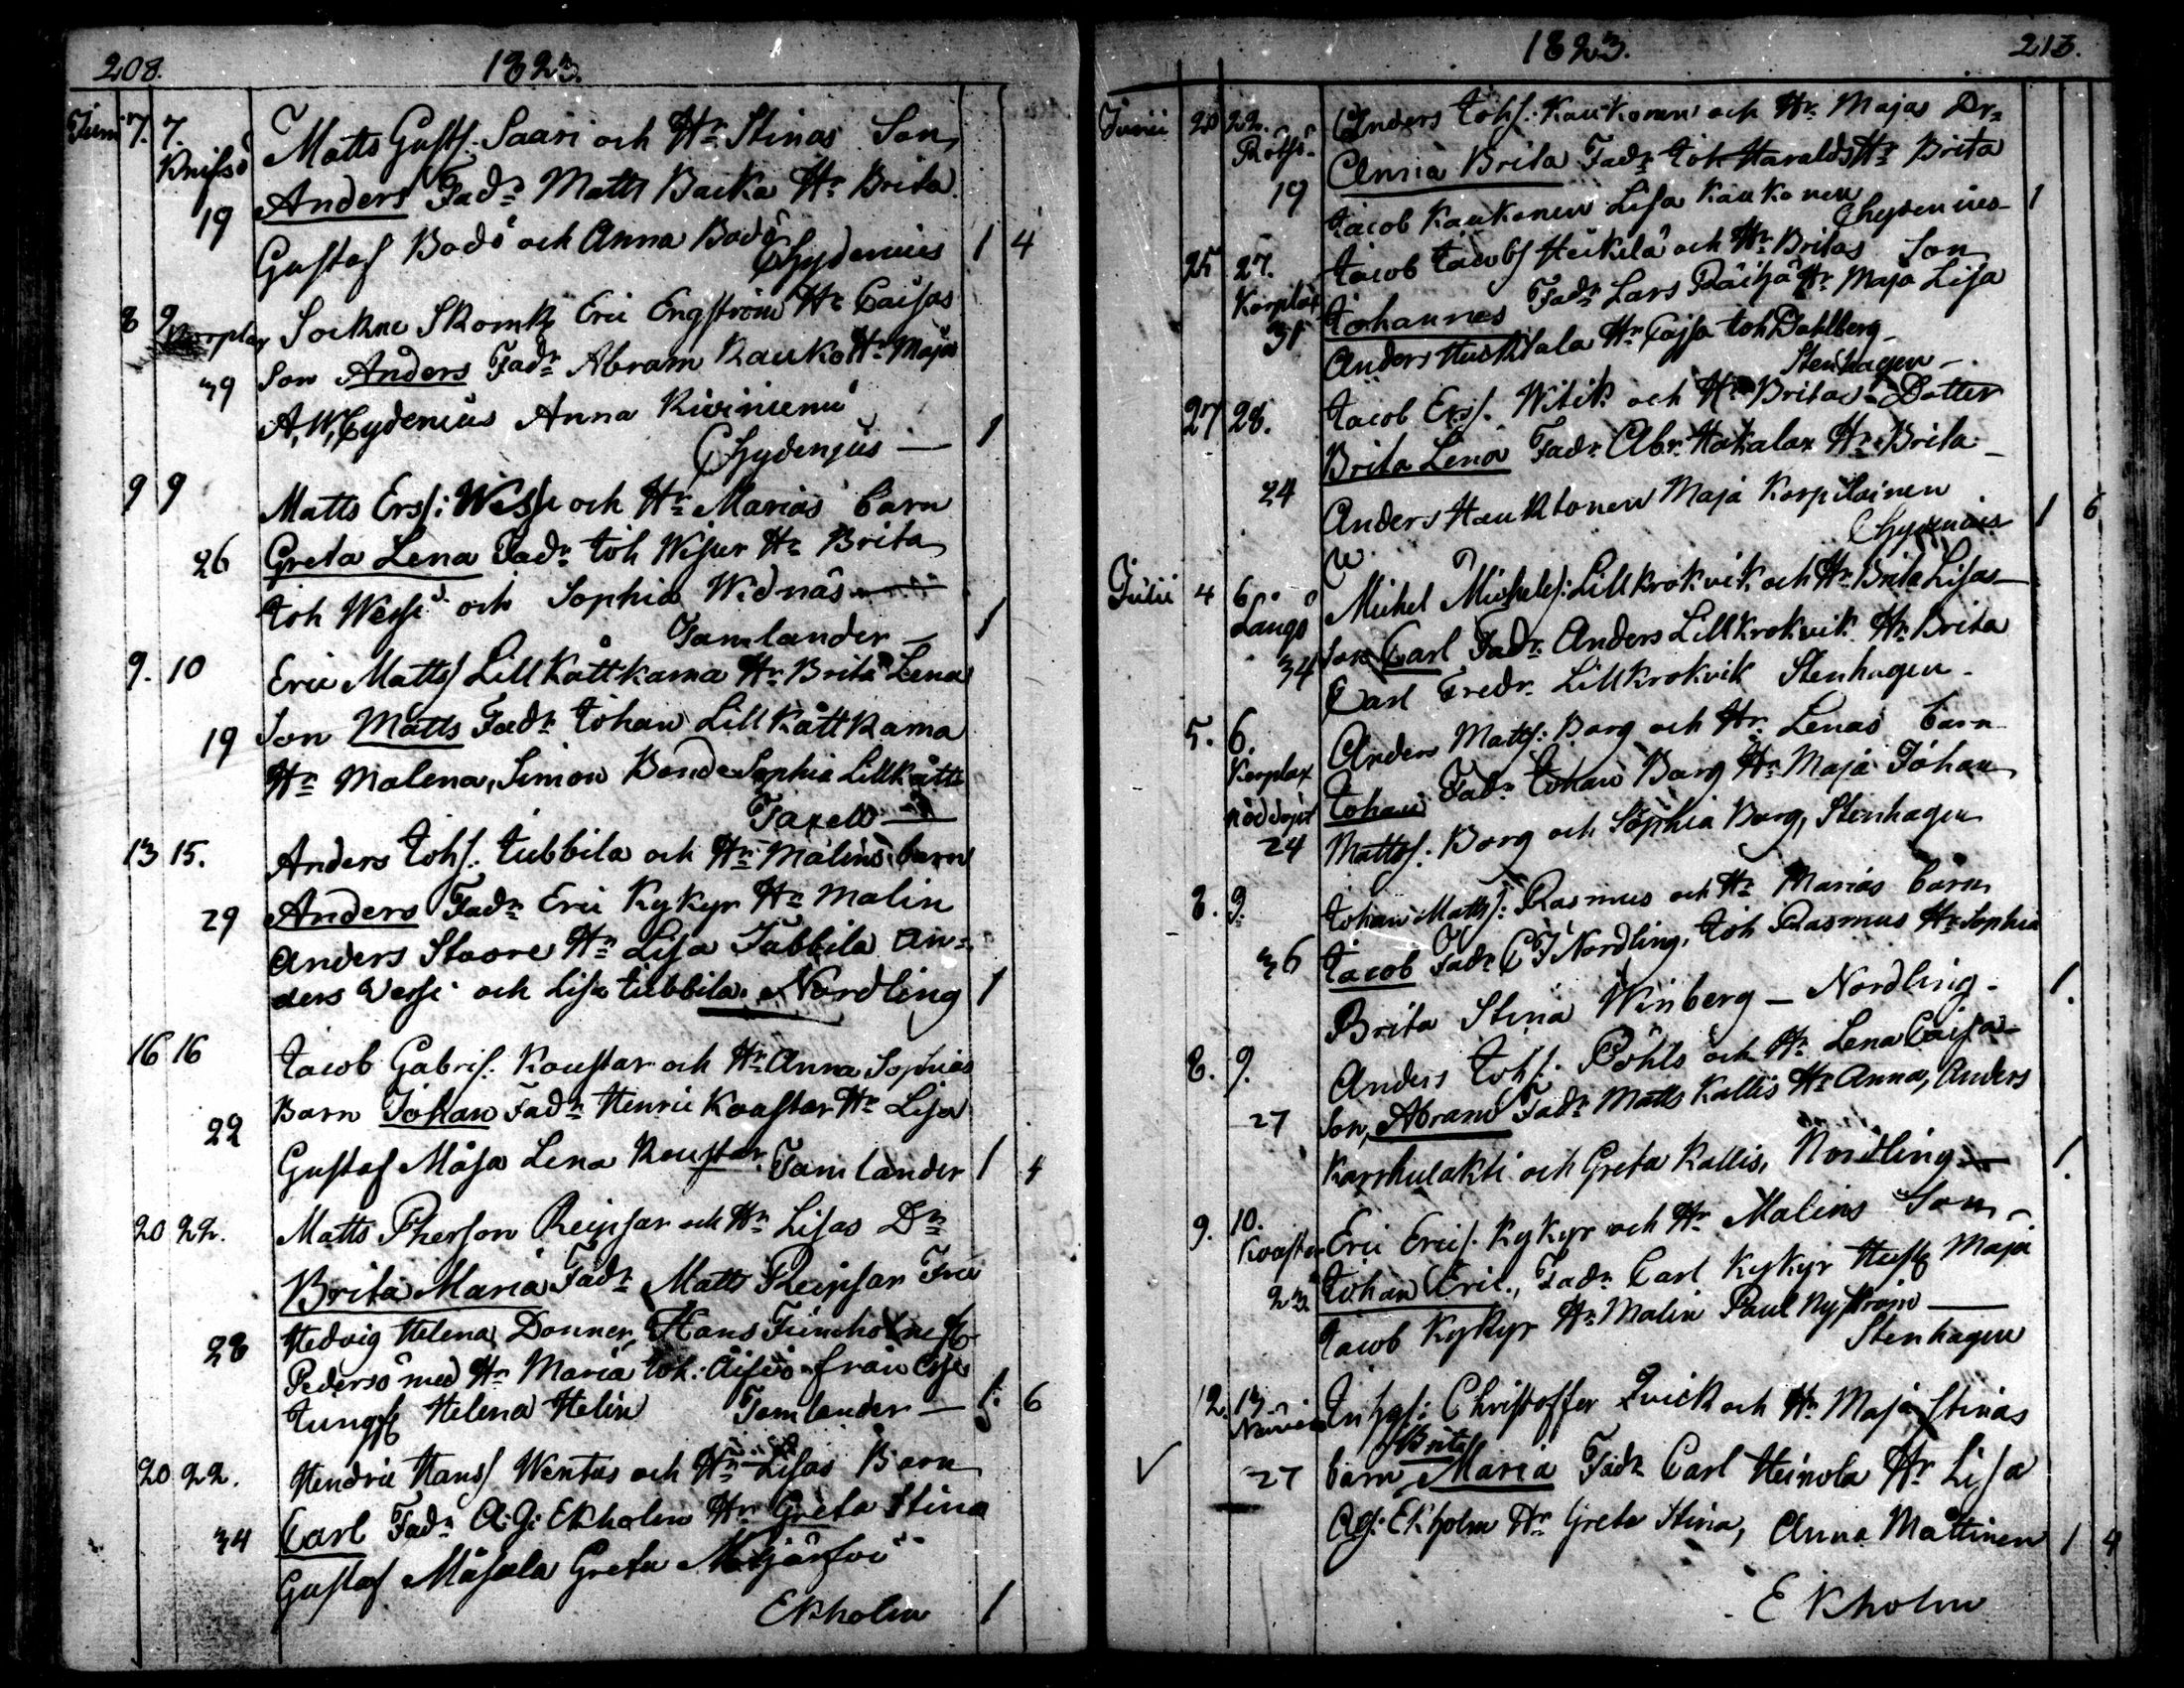 208. 1823.
Junii 7. 7. Matts Gustf. Saari och Hr Stinas Son
Knifsö
Anders Fadr Matts Backa Hr Brita
19 Gustaf Bodö och Anna Bodö
Chydenius 1 4
8 9 Sockne Skomk Eric Engström Hr Caisas
Korplax
39 Son Anders Fadr Abram Rauko Hr Maja
A, W, Cydenius Anna Riviniemi
Chydenius — 1
9 9 Matts Ersf: Wessi och Hr Marias barn
26 Greta Lena Fadr Joh Wesser Hr Brita
Joh Wessi och Sophia Widnäs
Tamlander — 1
9. 10 Eric Mattsf Lillkåttkama Hr Brita Lena
19 Son Matts Fadr Johan Lillkåttkama
Hr Malena, Simon Bonde Sophia Lillkåtti
Taxell
13 15. Anders Johf. Jubbila och Hr Malins barn
29 Anders Fadr Eric Kykyr Hr Malin
Anders Stoore Hr Lisa Jubbila An=
ders Versi och Lisa Jubbila. Nordling 1
16 16 Jacob Gabrif. Koustar och Hr Anna Sophias
22 Barn Johan Fadr Henric Koustar Hr Lisa
Gustaf Måsa Lena Koustar. Tamlander 1 4
20 22. Matts Pherson Reipsar och Hr Lisas Dr
Brita Maria Fadr Matts Reipsar Fru
28 Hedvig Helena Donner, Hans
Pedersö med Hr Maria Joh: från
Jungf Helena Helin Tamlander — 1. 6
20 22. Hendric Hansf Wentus och Hr Lisas Barn
34 Carl Fadr A: G: Ekholm Hr Greta Stina
Gustaf Måsala Greta
Ekholm 1
1823. 213.
Junii 20 22. Anders Johf: Kaukonen och Hr Majas Dr=
Rötsö.
Anna Brita Fadr Joh Haralds Hr Brita
19 Jacob Kaukonen Lisa Kaukonen 1
Chydenius
25 27. Jacob Jacobf Heikilä och Hr Britas Son
Korplax
Johannes Fadr Lars Räihä Hr Maja Lisa
31 Anders Huchtala Hr Cajsa Joh Dahlberg
Stenhagen —
27 28. Jacob Ersf. Witik och Hr Britas Dotter
Brita Lena Fadr Abr. Hakalax Hr Brita
24 Anders Hauktonen Maja Korpilainen 1 6
Chydenius
Julii 4 6. Michel Michelsf: Lillkrokvik och Hr Brita Lisas
Långö
34 Son Carl Fadr Anders Lillkrokvik Hr Brita
Carl Fredr. Lillkrokvik Stenhagen
5. 6. Anders Mattsf: Borg och Hr Lenas barn
Korplax
Johan Fadr Johan Borg Hr Maja Johan
nöddöpt
24 Mattsf: Borg och Sophia Borg, Stenhagen
8. 9. Johan Mattsf: Rasmus och Hr Marias barn
36 Jacob Fadr C J Nordling, Joh Rasmus Hr Sophia
Brita Stina Winberg — Nordling. 1.
8. 9. Anders Johf. Pöhls och Hr Lena Caisas
27 Son, Abram Fadr Matts Kallis Hr Anna, Anders
Karhulakti och Greta Kallis, Nordling 1.
9. 10. Eric Ericf. Kykyr och Hr Malins Son
Koustar
23 Johan Eric, Fadr Carl Kykyr Hust Maja
Jacob Kykyr Hr Malin Paul Nyström
Stenhagen
12. 13. Christoffer Qvick och Hr Maja Stinas
Brita
27 barn Maria Fadr Carl Heinola Hr Lisa
A G: Ekholm Hr Greta Stina, Anna Mattinen 1 4
Ekholm